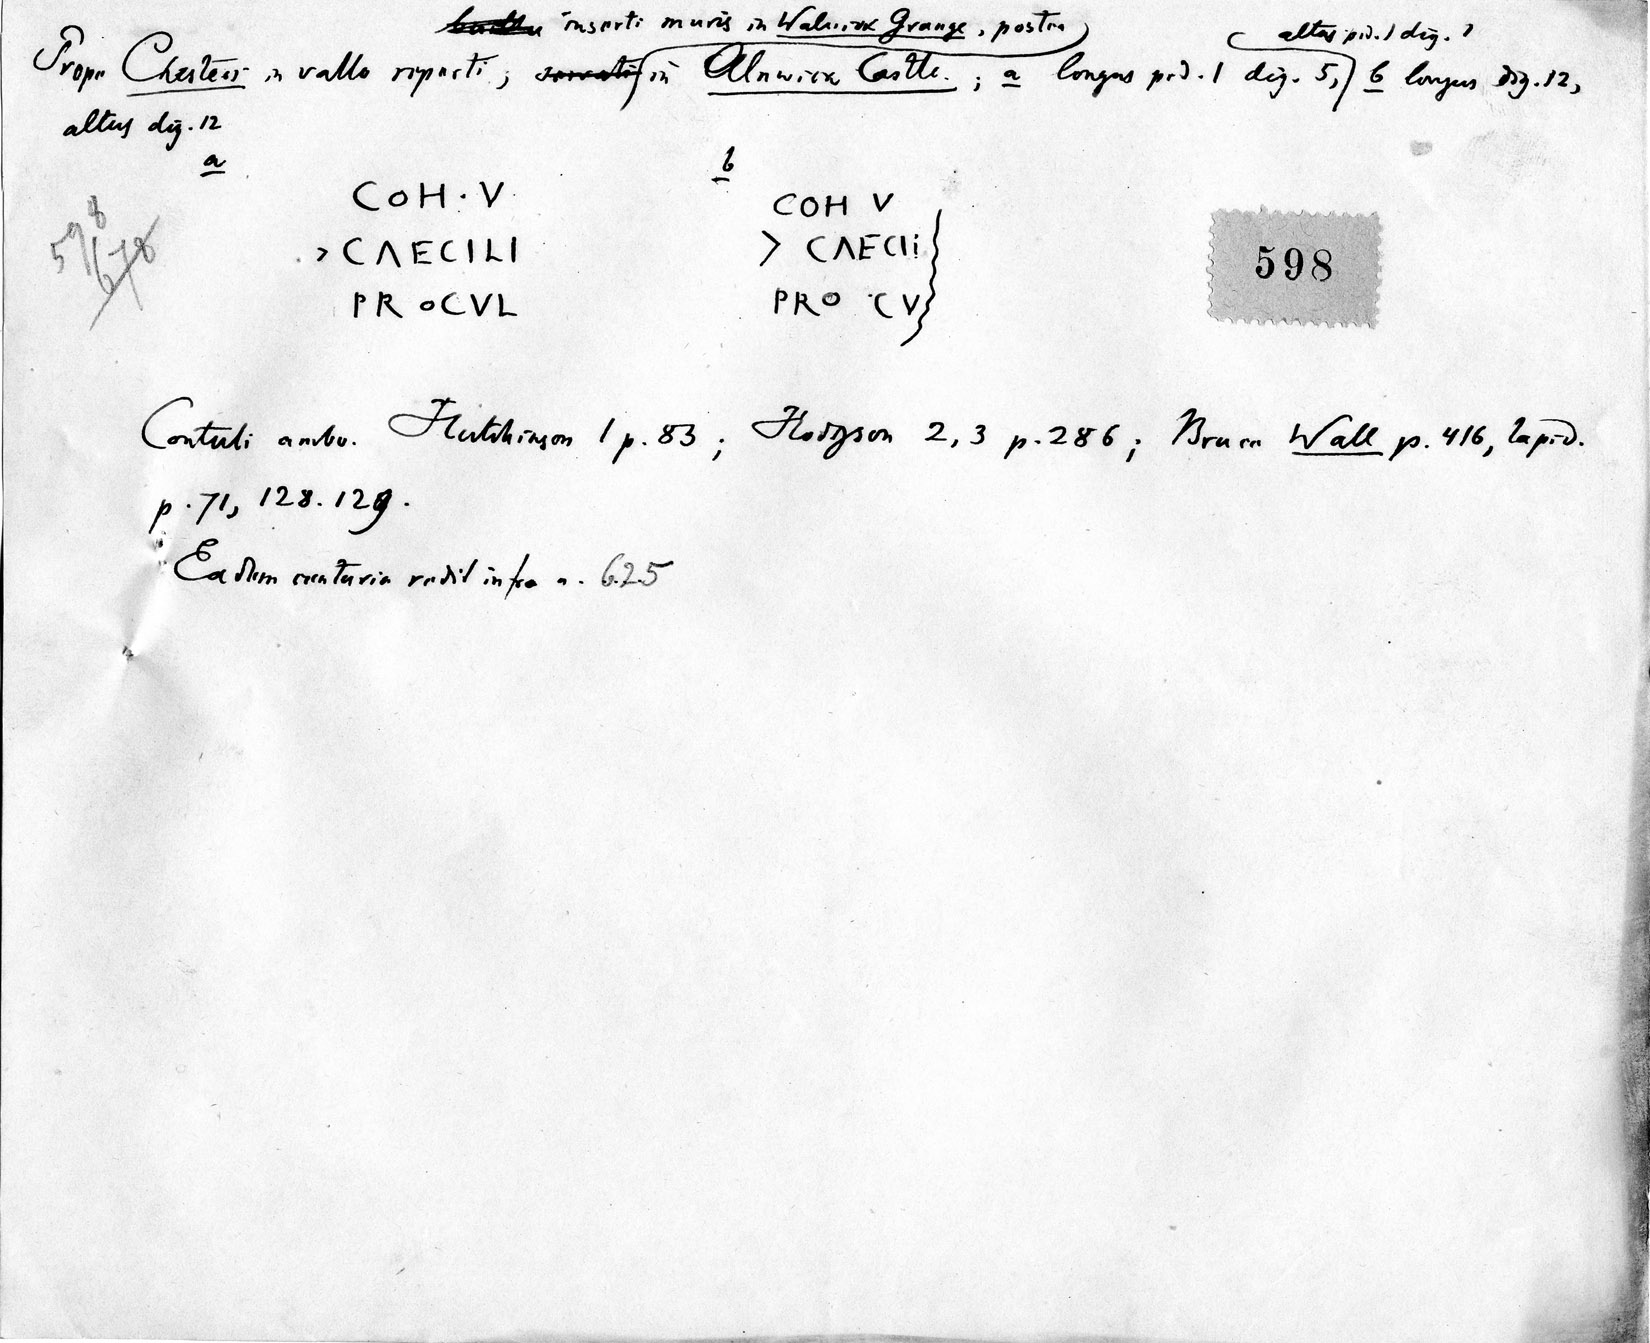 inserti muris in Walwick Grange, postea
altus ped. 1 dig. 1
Prope Chesters in vallo reperti; servati in Alnwick Castle.; a longus ped. 1 dig. 5, b longus dig. 12,
altus dig. 12
a
b
COH · V
> CAECILI
PROCVL
COH V
> CAECIi
PRO CV
598
678
598
Contuli ambo. Hutchinson 1 p. 83; Hodgson 2, 3 p. 286; Bruce Wall p. 416, lapid.
p. 71, 128. 129.
Eadem centuria redit infra n. 625